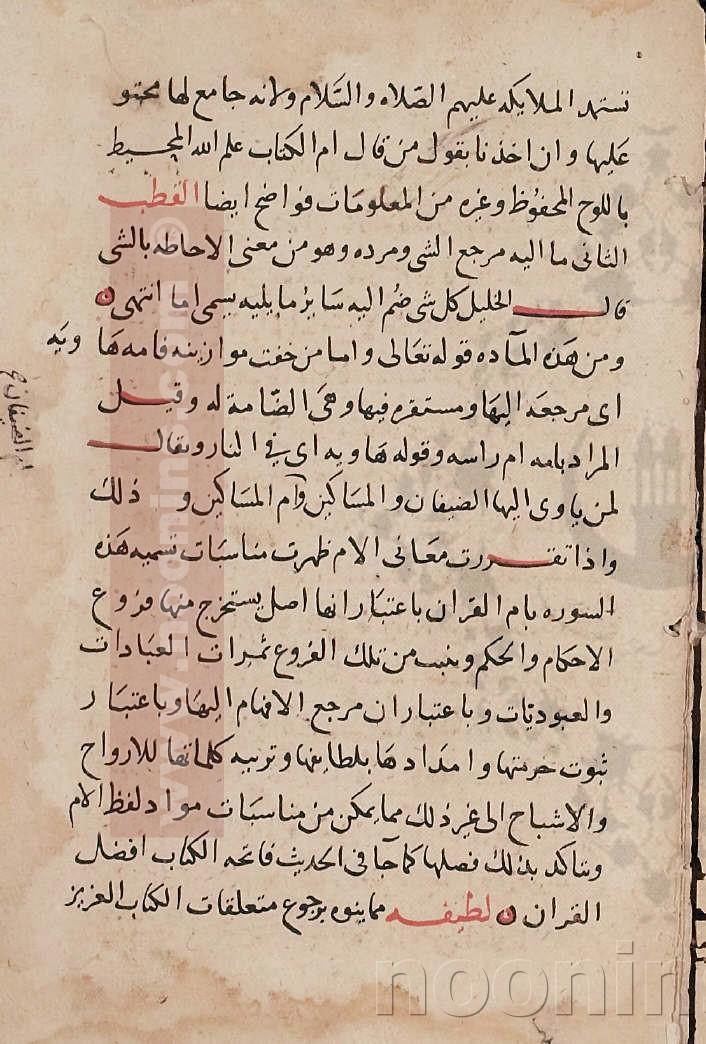 تستمد الملايكه عليهم الصلاه والسلام ولانه جامع لها محتو
عليها وان اخذنا بقول من قال ام الكتاب علم الله المحيط
باللوح المحفوظ وغيره من المعلومات فواضح ايضا القطب
الثانى ما اليه مرجع الشى ومرده وهو من معنى الاحاطه بالشى
قال الخليل كل شى ضم اليه ساير ما يليه يسمى اما انتهى
ومن هذه المآده قوله تعالى واما من خفت موازينه فامه ها ويه
اى مرجعه اليها ومستقره فيها وهى الضامة له وقيل
المراد بامه ام راسه وقوله هاويه اى فى النار ويقال
لمن ياوى اليها الضيفان والمساكين وام المساكين و ذلك
واذا تقررت معانى الام ظهرت مناسبات تسميه هذه
السوره بام القران باعتبار انها اصل يستخرج منها فروع
الاحكام والحكم وينبت من تلك الفروع ثمرات العبادات
والعبوديات وباعتبار ان مرجع الافهام اليها وباعتبار
ثبوت حرمتها وامدادها بلطايفها وتربيه كلماتها للارواح
والاشباح الى غير ذلك مما يمكن من مناسبات مواد لفظ الام
ويتاكد بذلك فضلها كما جا فى الحديث فاتحه الكتاب افضل
القران لطيفه مما ينوه برجوع متعلقات الكتاب العزيز
ام الضيفان
www.noonin
noonin